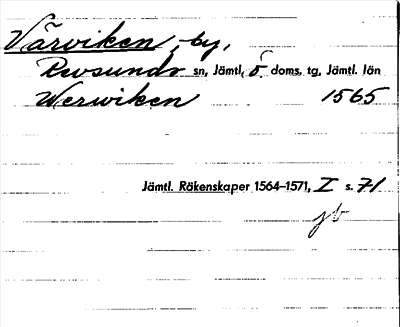 Värviken, by,
Revsunds sn, Jämtl. ö. doms. tg, Jämtl. län
Werwiken 1565
Jämtl. Räkenskaper 1564-1571, I s. 71
jb